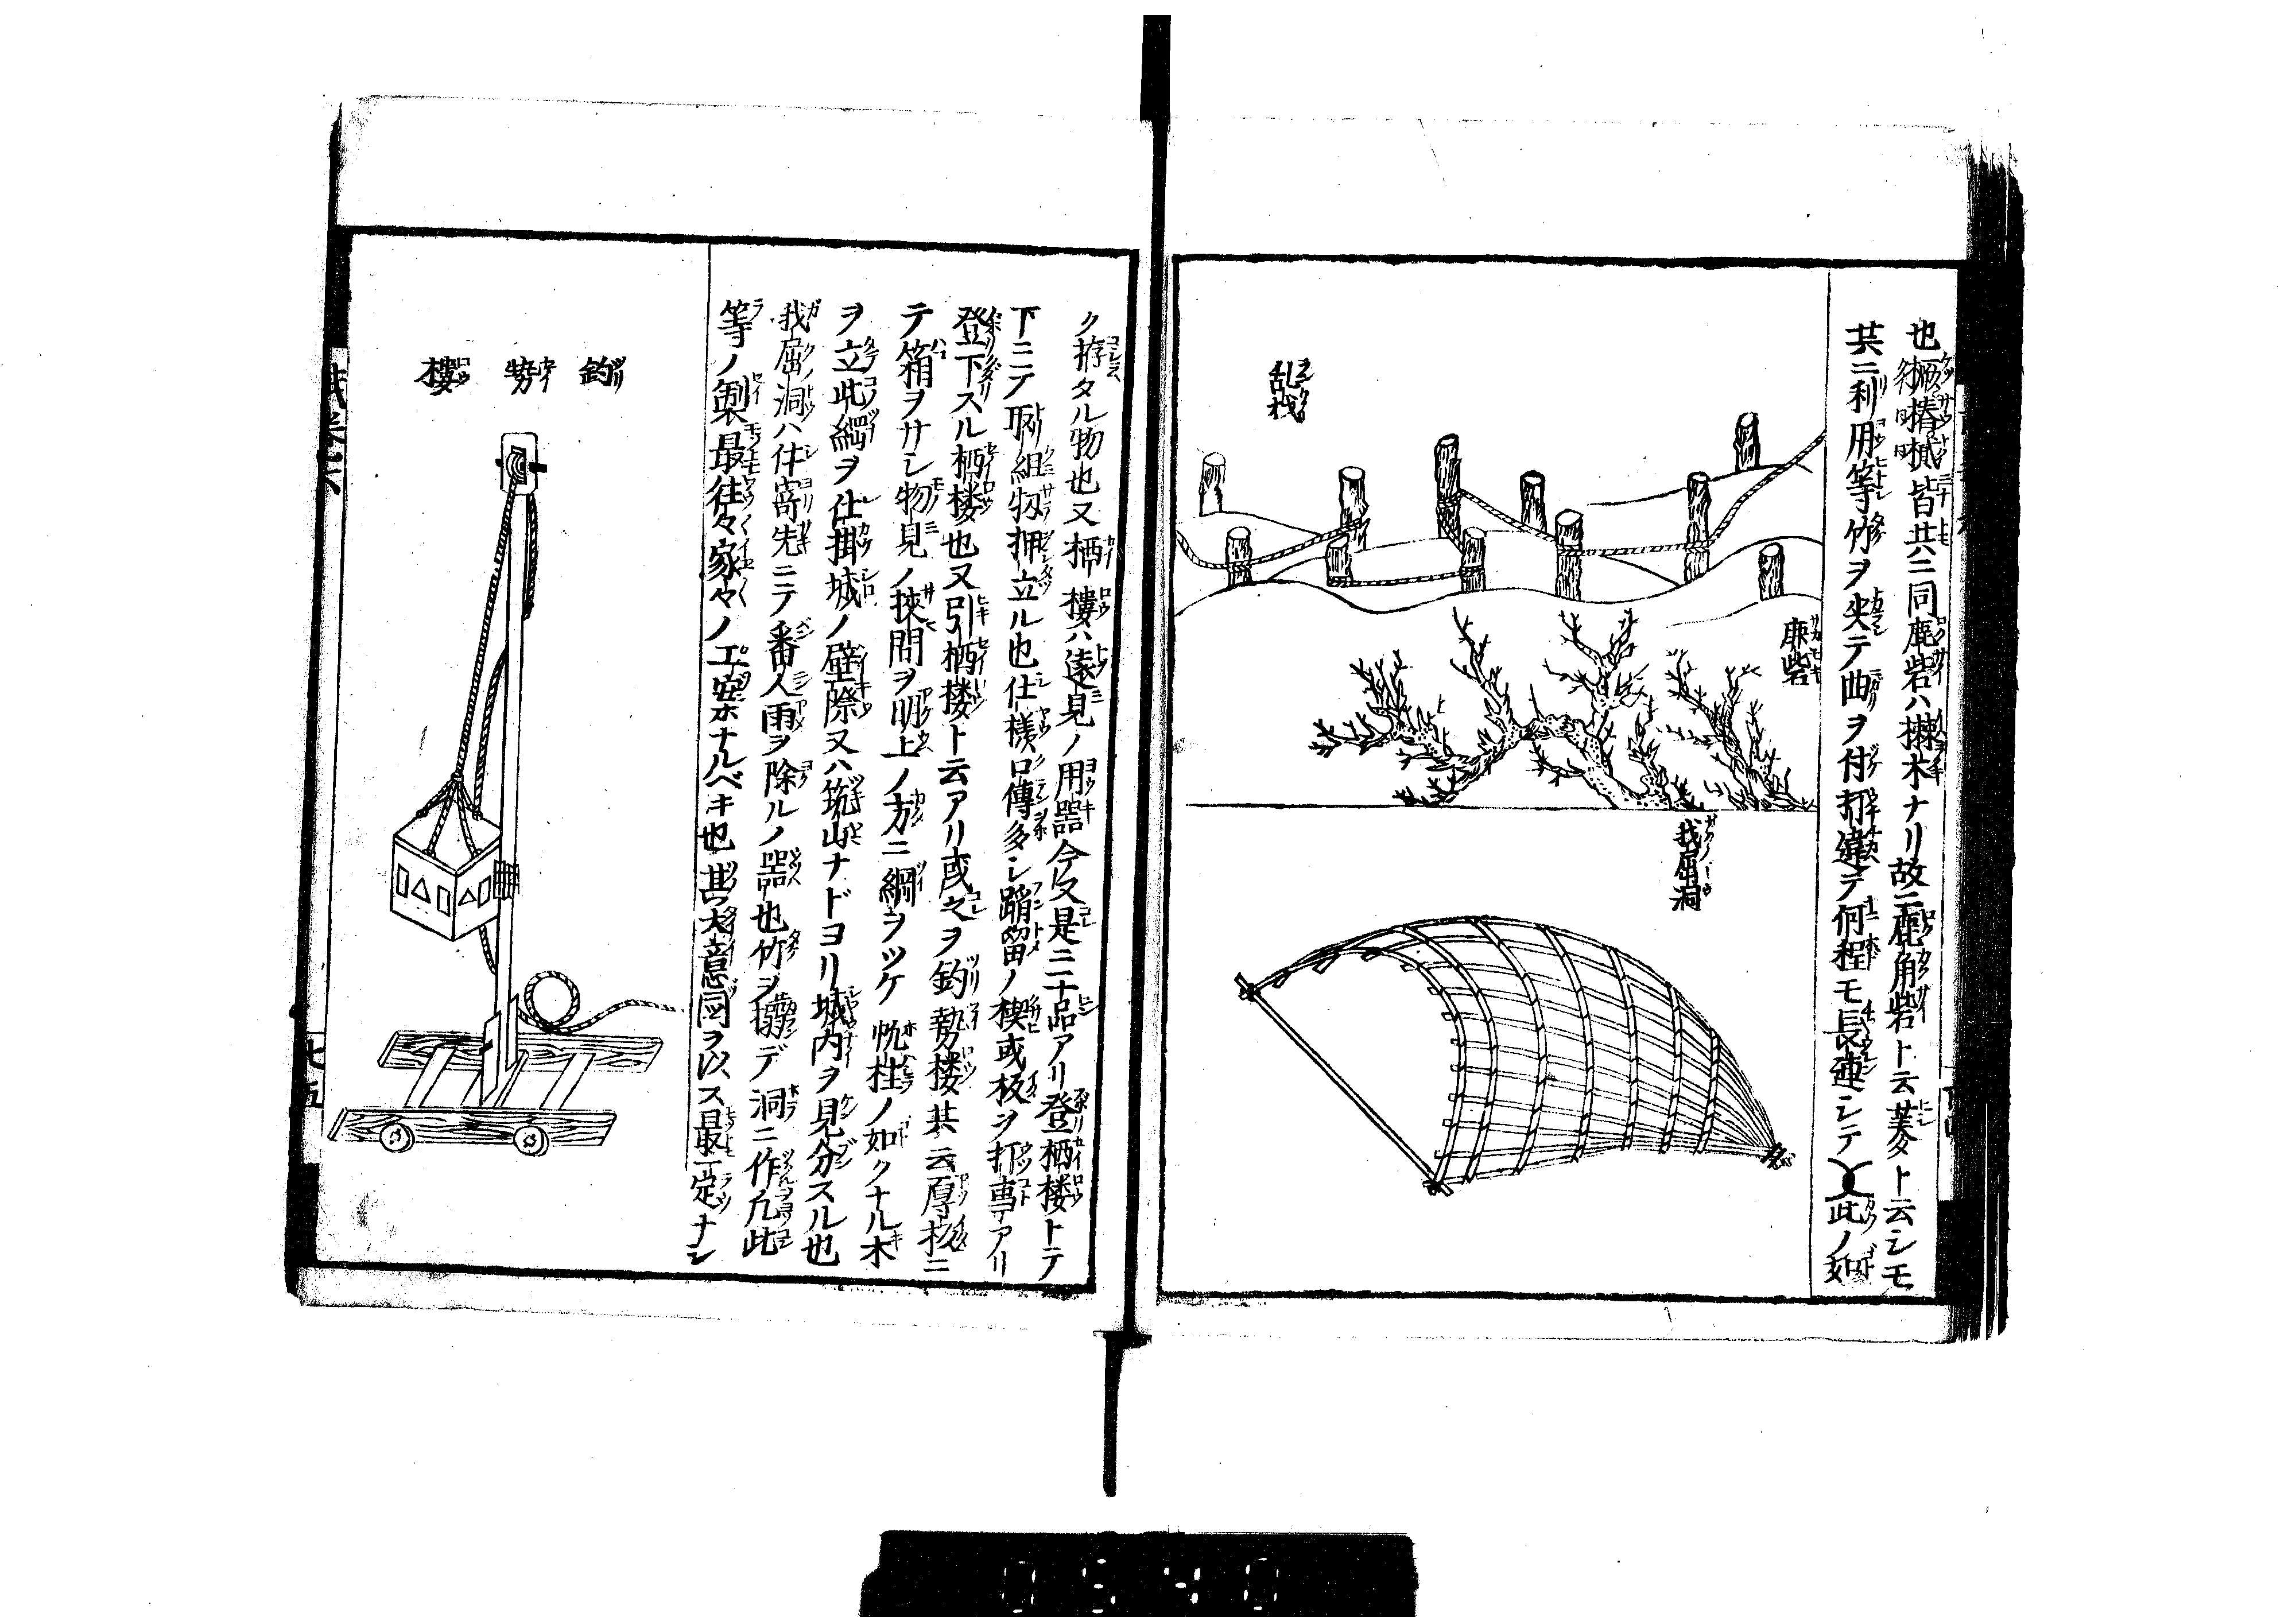 皆共ニ同鹿砦ハ
木ナリ故ニ鹿角砦ト云菱ト云シモ
共ニ利用等竹ヲ尖テ曲ヲ付打違テ何程モ長連シテ
此ノ如
乱杭
鹿砦
我屈洞
ク拵タル物也又栖樓ハ遠見ノ用器今又是ニ十品アリ登栖楼トテ
下ニテ取組扨押立ル也仕様口傳多シ踏留ノ楔或板ヲ打事アリ
登下スル栖楼也又引栖楼ト云アリ或之ヲ釣勢楼共云厚板ニ
テ箱ヲサシ物見ノ狭間ヲ明上ノ方ニ綱ヲツケ帆柱ノ如クナル木
ヲ立此綱ヲ仕掛城ノ壁際又ハ築山ナドヨリ城内ヲ見分スル也
我屈洞ハ仕寄先ニテ番人雨ヲ除ルノ器也竹ヲ撓デ洞ニ作凡此
等ノ製最往々家々ノ工案ナルベキ也其大意図ヲ以ス最一定ナシ
釣勢樓
七五